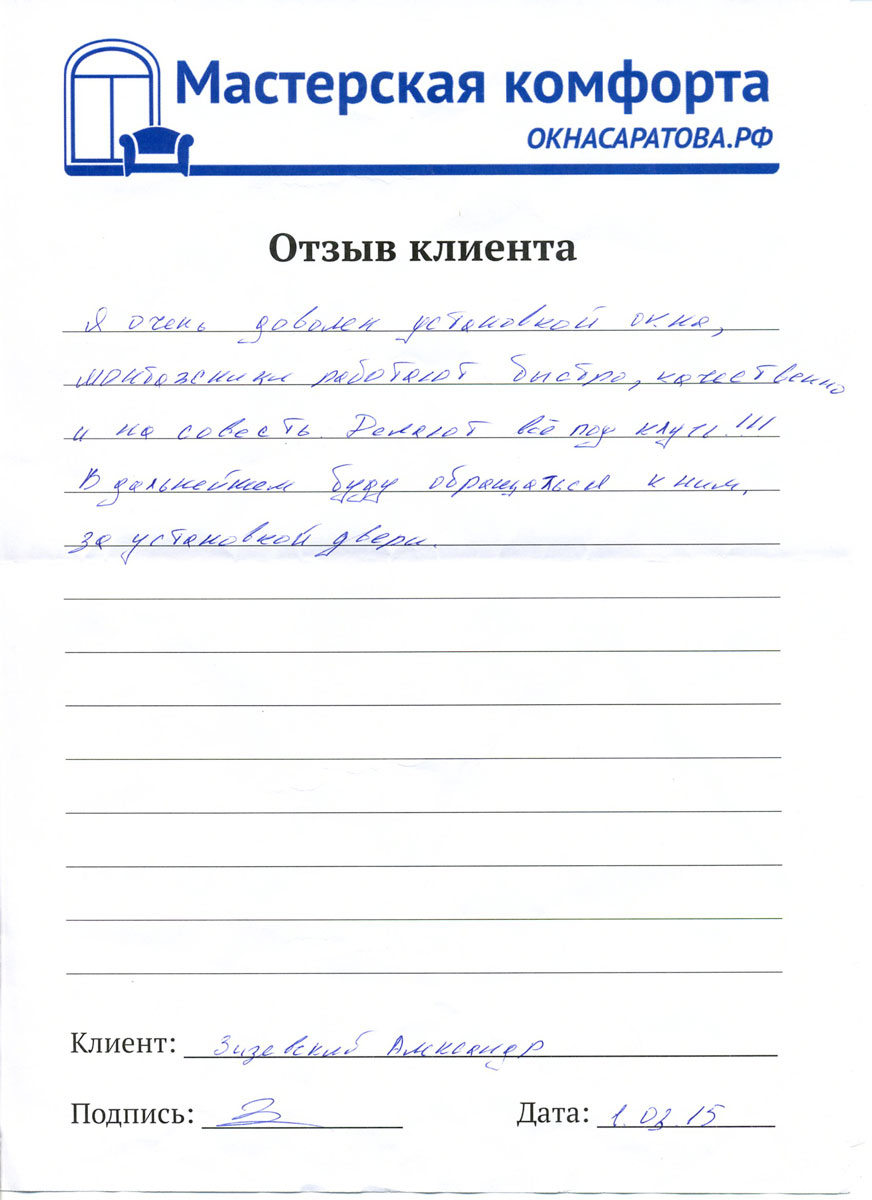 Мастерская комфорта
ОКНАСАРАТОВА.РФ
Отзыв клиента
Я очень доволен установкой окна,
монтажники работают быстро, качественно
и на совесть. Делают всё под ключ!!!
В дальнейшем буду обращаться к ним,
за установкой двери.
Клиент: Зизевский Александр
Подпись:
Дата: 1.03.15